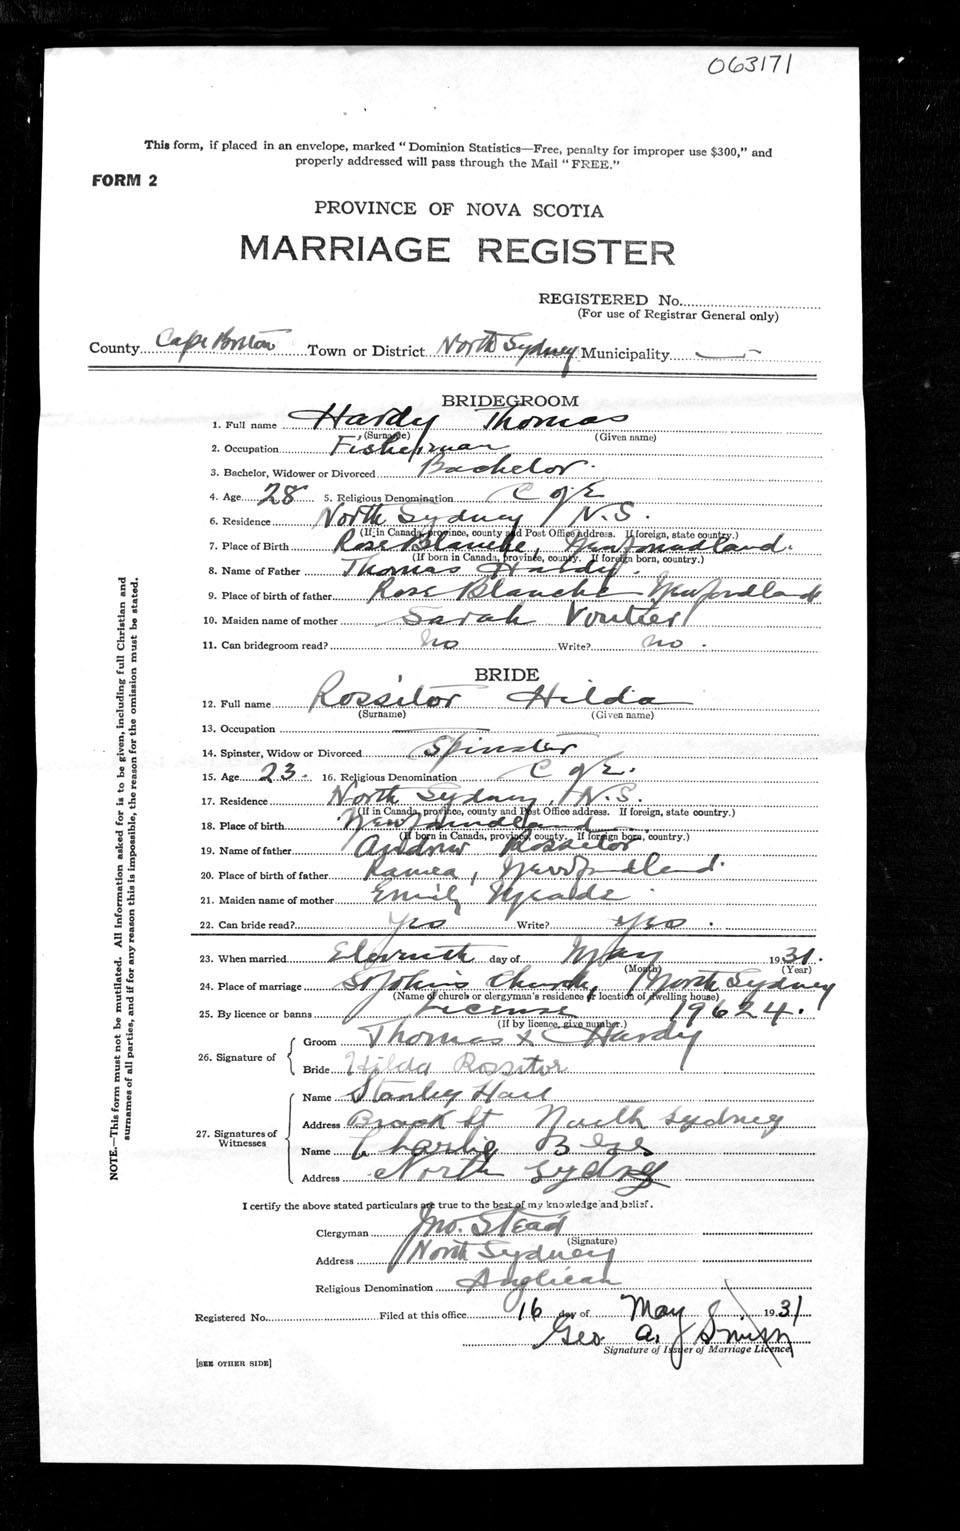 063171
This form, if placed in an envelope, marked "Dominion Statistics—Free, penalty for improper use $300," and
properly addressed will pass through the Mail "FREE."
FORM 2
PROVINCE OF NOVA SCOTIA
MARRIAGE REGISTER
REGISTERED No.
(For use of Registrar General only)
County Cape Breton Town or District North Sydney Municipality —
BRIDEGROOM
1. Full name Hardy Thomas
(Surname) (Given name)
2. Occupation Fisherman
3. Bachelor, Widower or Divorced Bachelor.
4. Age 28 5. Religious Denomination C of E
6. Residence North Sydney N.S.
(If in Canada, province, county and Post Office address. If foreign, state country.)
7. Place of Birth Rose Blanche, Newfoundland.
(If born in Canada, province, county. If foreign born, country.)
8. Name of Father Thomas Hardy.
9. Place of birth of father Rose Blanche Newfoundland
10. Maiden name of mother Sarah
11. Can bridegroom read? no Write? no.
BRIDE
12. Full name Rossitor Hilda
(Surname) (Given name)
13. Occupation —
14. Spinster, Widow or Divorced Spinster
15. Age 23. 16. Religious Denomination C of E.
17. Residence North Sydney, N.S.
(If in Canada, province, county and Post Office address. If foreign, state country.)
18. Place of birth Newfoundland
(If born in Canada, province, county. If foreign born, country.)
19. Name of father Andrew Rossitor
20. Place of birth of father Ramea, Newfoundland.
21. Maiden name of mother Emily Meade
22. Can bride read? Yes Write? yes.
23. When married Eleventh day of May 1931.
(Month) (Year)
24. Place of marriage St John's Church, North Sydney
(Name of church or clergyman's residence or location of dwelling house)
25. By licence or banns License 19624.
(If by licence, give number.)
26. Signature of Groom Thomas X Hardy
Bride Hilda Rossitor
27. Signatures of Witnesses Name Stanley
Address North Sydney
Name Charlie
Address North Sydney
I certify the above stated particulars are true to the best of my knowledge and belief.
Clergyman Jno. Stead
(Signature)
Address North Sydney
Religious Denomination Anglican
Registered No. Filed at this office 16 day of May 1931
Geo A. Smith
Signature of Issuer of Marriage Licence
[SEE OTHER SIDE]
NOTE.—This form must not be mutilated. All information asked for is to be given, including full Christian and
surnames of all parties, and if for any reason this is impossible, the reason for the omission must be stated.